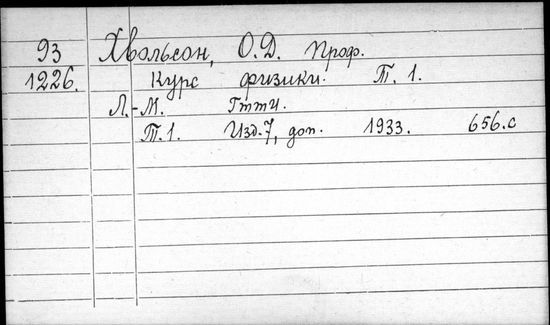 93 Хвольсон, О.Д. Проф.
1226. Курс физики. Т. 1.
Л.-М. Гтти.
Т.1. Изд.7, доп. 1933. 656.с